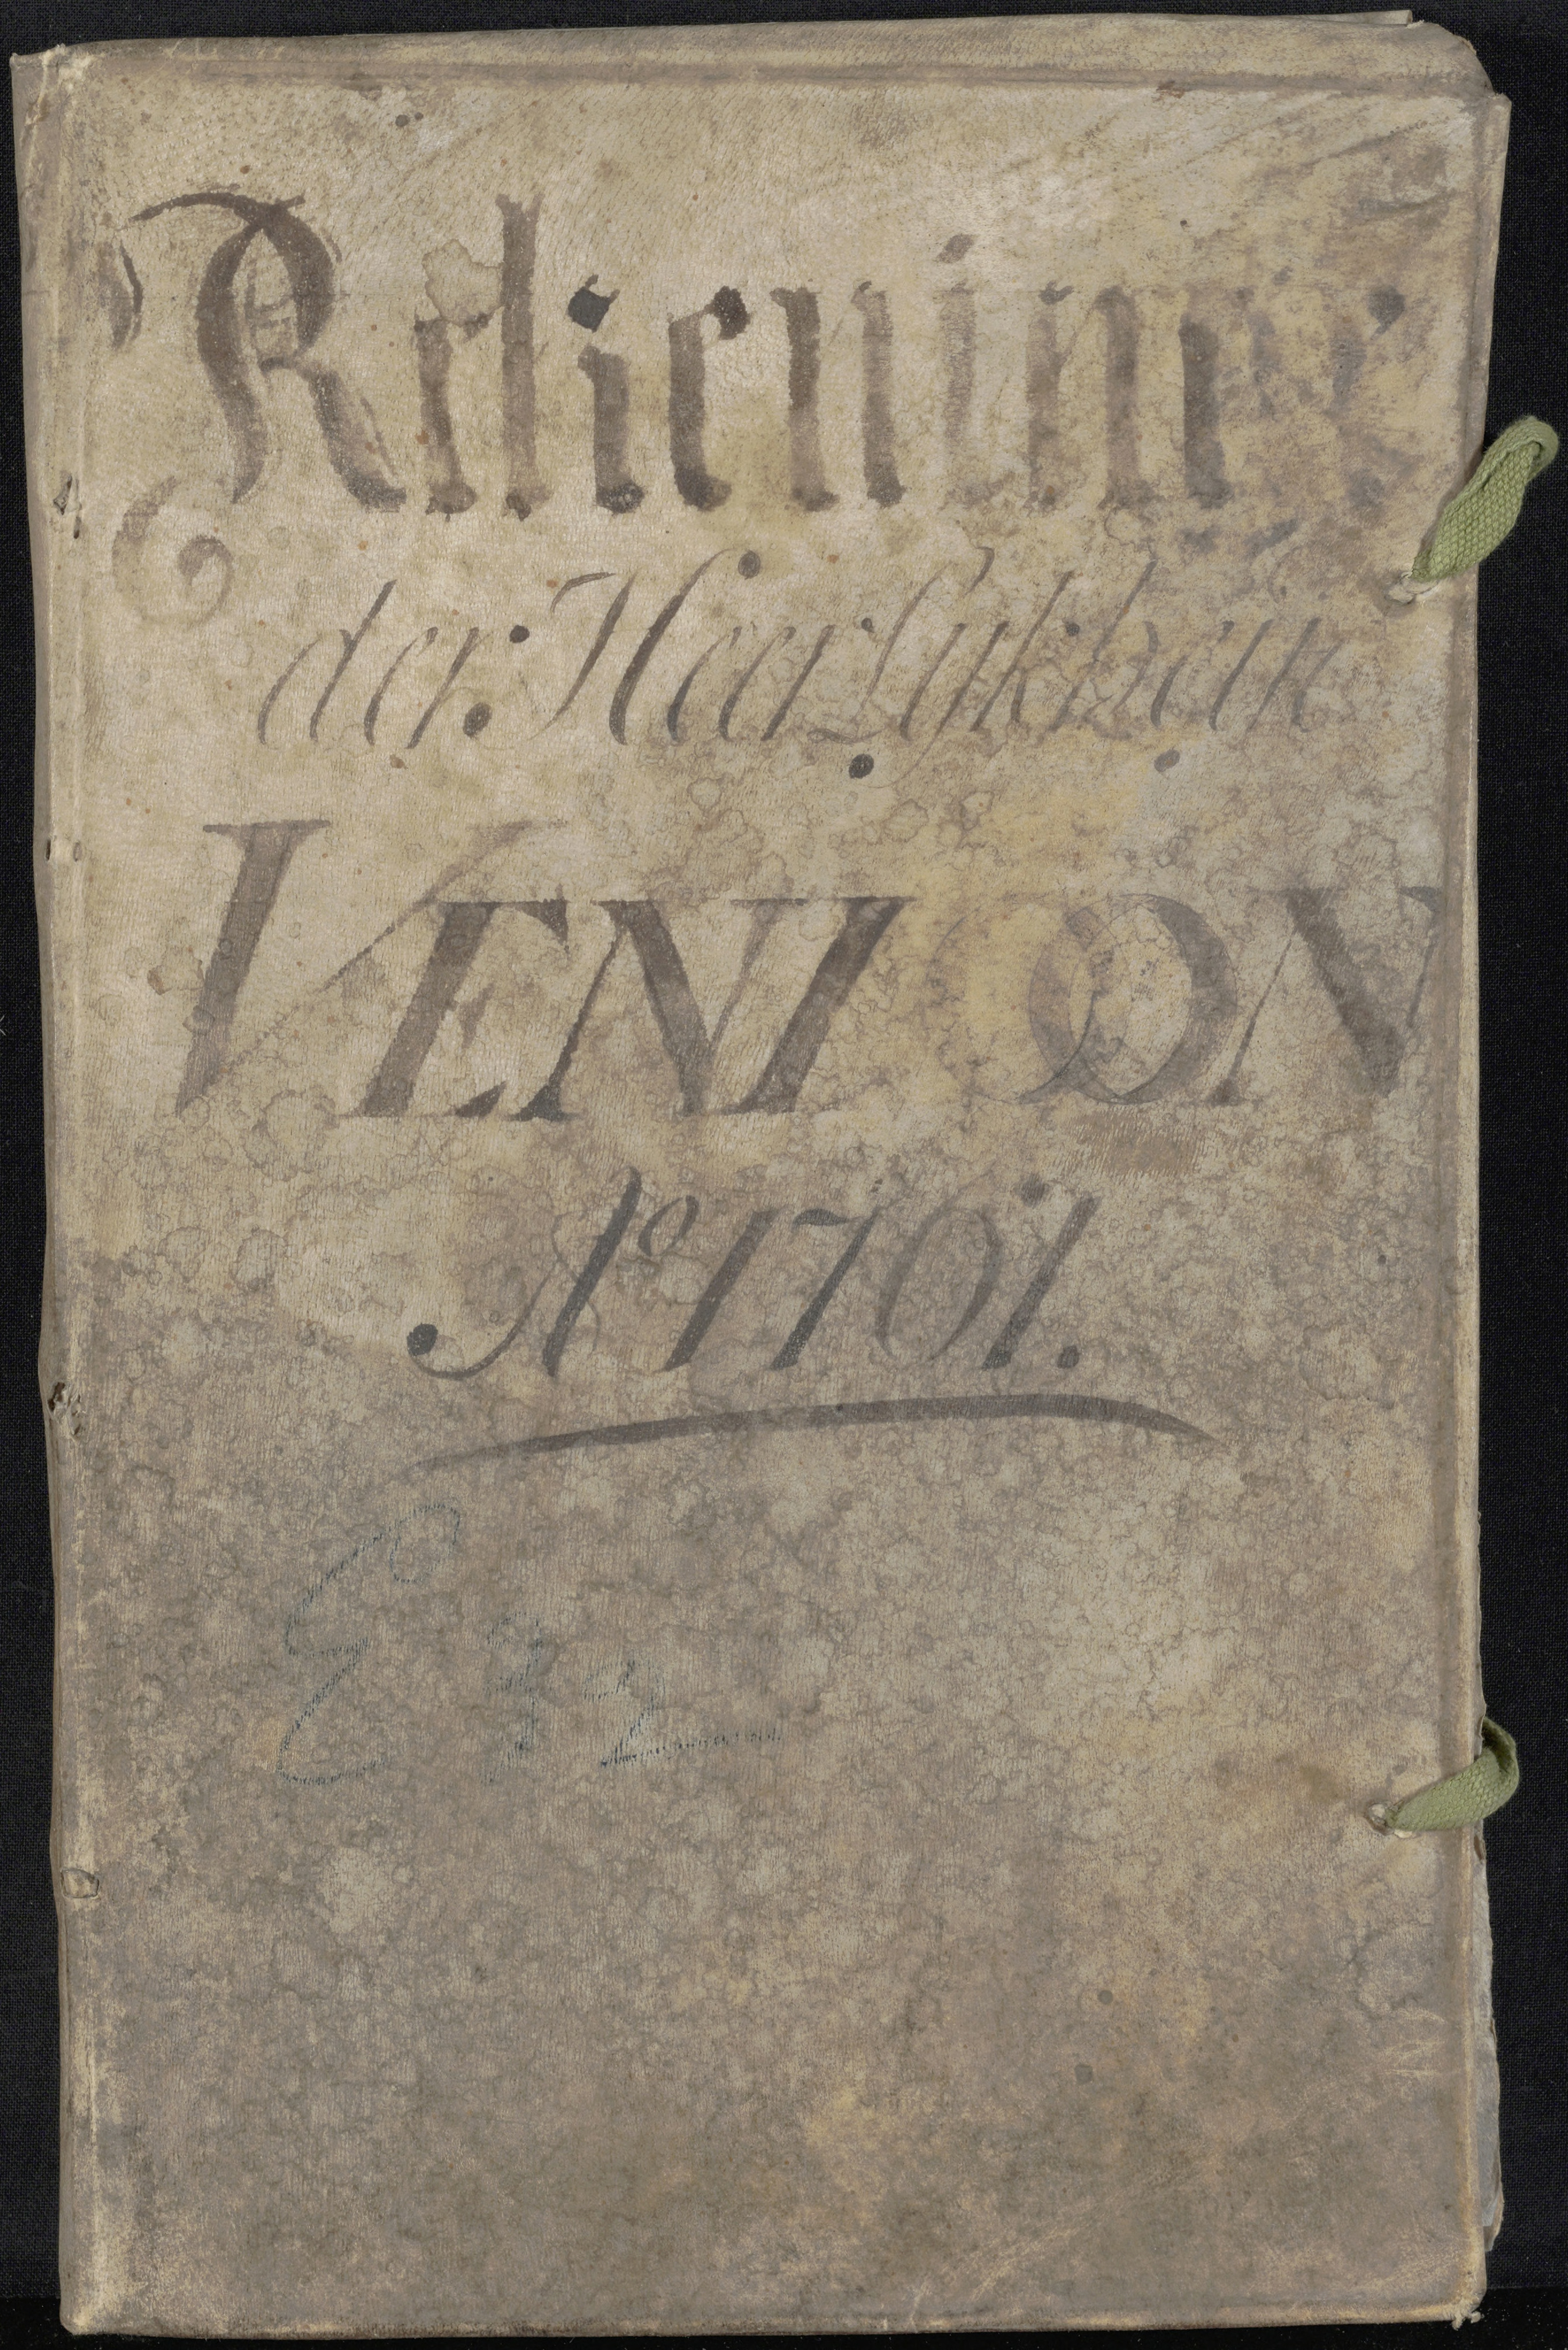 Rekening
der Heerlykheit
VENLOON
A° 1701.
E 32